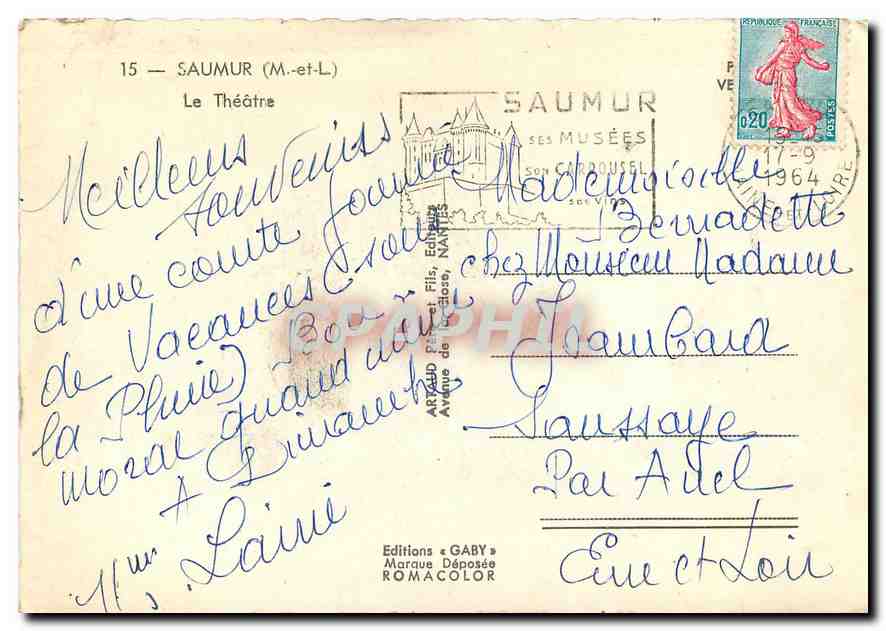 15 — SAUMUR (M.-et-L.)
Le Théâtre
Meilleurs
souvenirs
d'une courte Journée
de Vacances (sous
la Pluie) Bon
moral quand même
A Dimanche
Mme Lainé
ARTAUD Père et Fils, Editeurs
Avenue de la Close, NANTES
Editions « GABY »
Marque Déposée
ROMACOLOR
SAUMUR
SES MUSÉES
SON CARROUSEL
SES VINS
REPUBLIQUE FRANÇAISE
0,20
POSTES
17-9
1964
ET LOIRE
Mademoiselle
Bernadette
chez Monsieur Madame
Jeambard
Saussaye
Par Anel
Eure et Loir
CPAPHIL